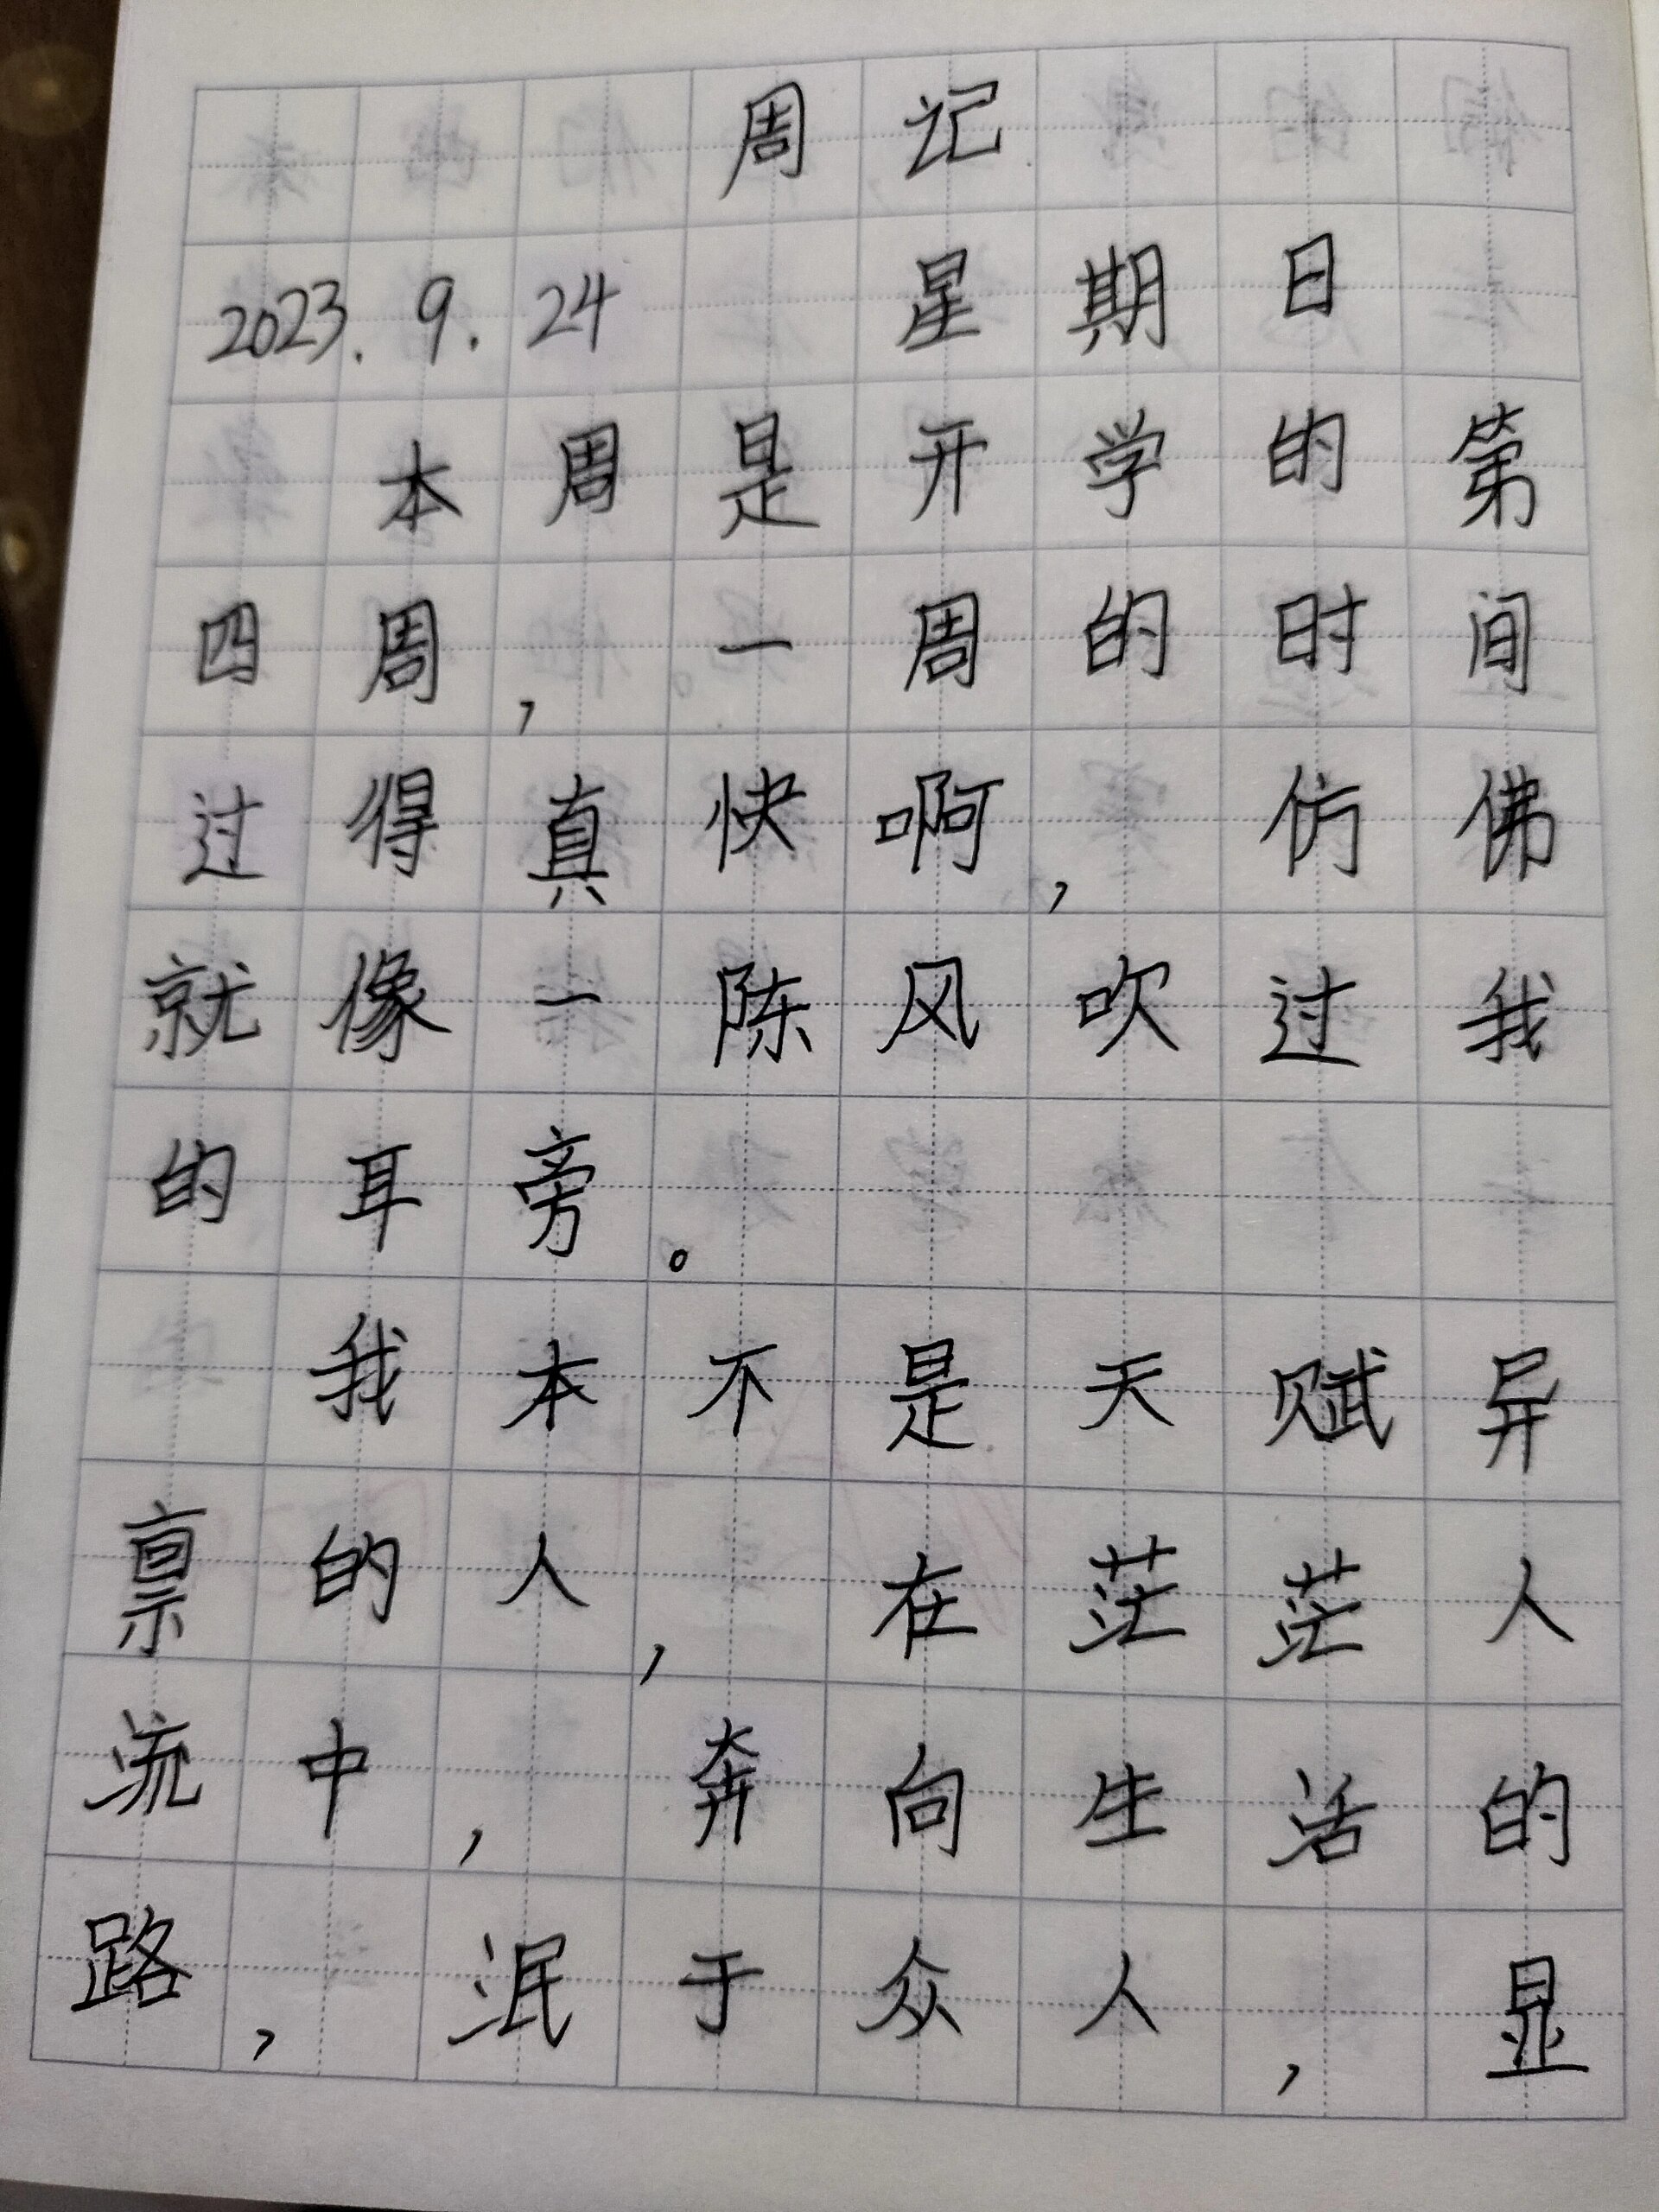 周记
2023.9.24 星期日
本周是开学的第
四周,一周的时间
过得真快啊,仿佛
就像一陈风吹过我
的耳旁。
我本不是天赋异
禀的人,在茫茫人
流中,奔向生活的
路,泯于众人,显